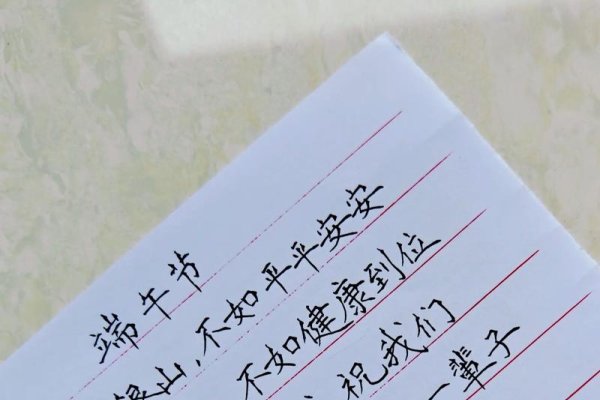 端午节
山，不如平平安安
不如健康到位
祝我们
一辈子